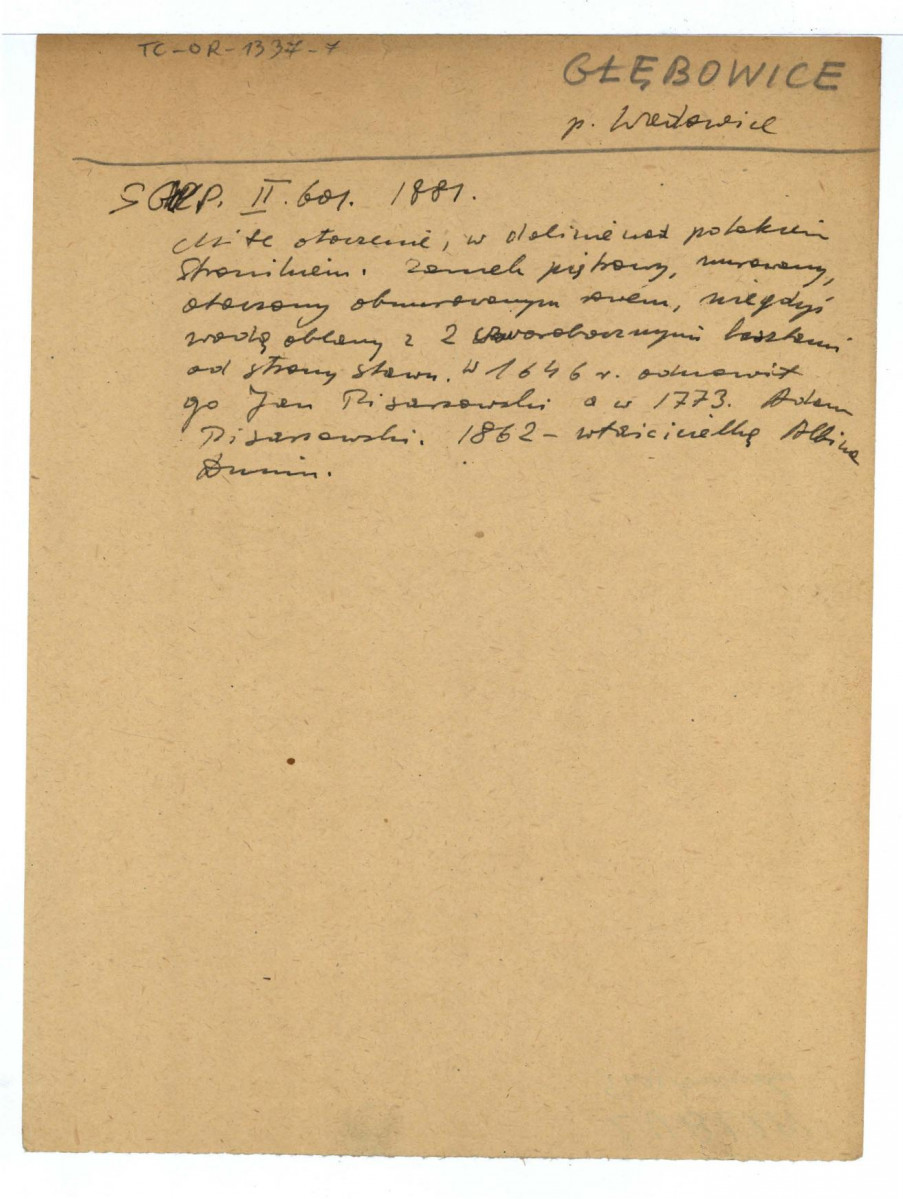 TC-OR-1337-7
GŁĘBOWICE
p. Wadowice
SGKP. II. 601. 1881.
Miłe otoczenie, w dolinie nad potokiem
Stronikiem. Zamek piętrowy, murowany,
otoczony obmurowanym rowem, niegdyś
wodą oblany z 2 czworobocznymi basztami
od strony stawu. W 1646 r. odnowił
go Jan Pisarzowski a w 1773. Adam
Pisarzowski. 1862 - właścicielką Albina
Dunin.